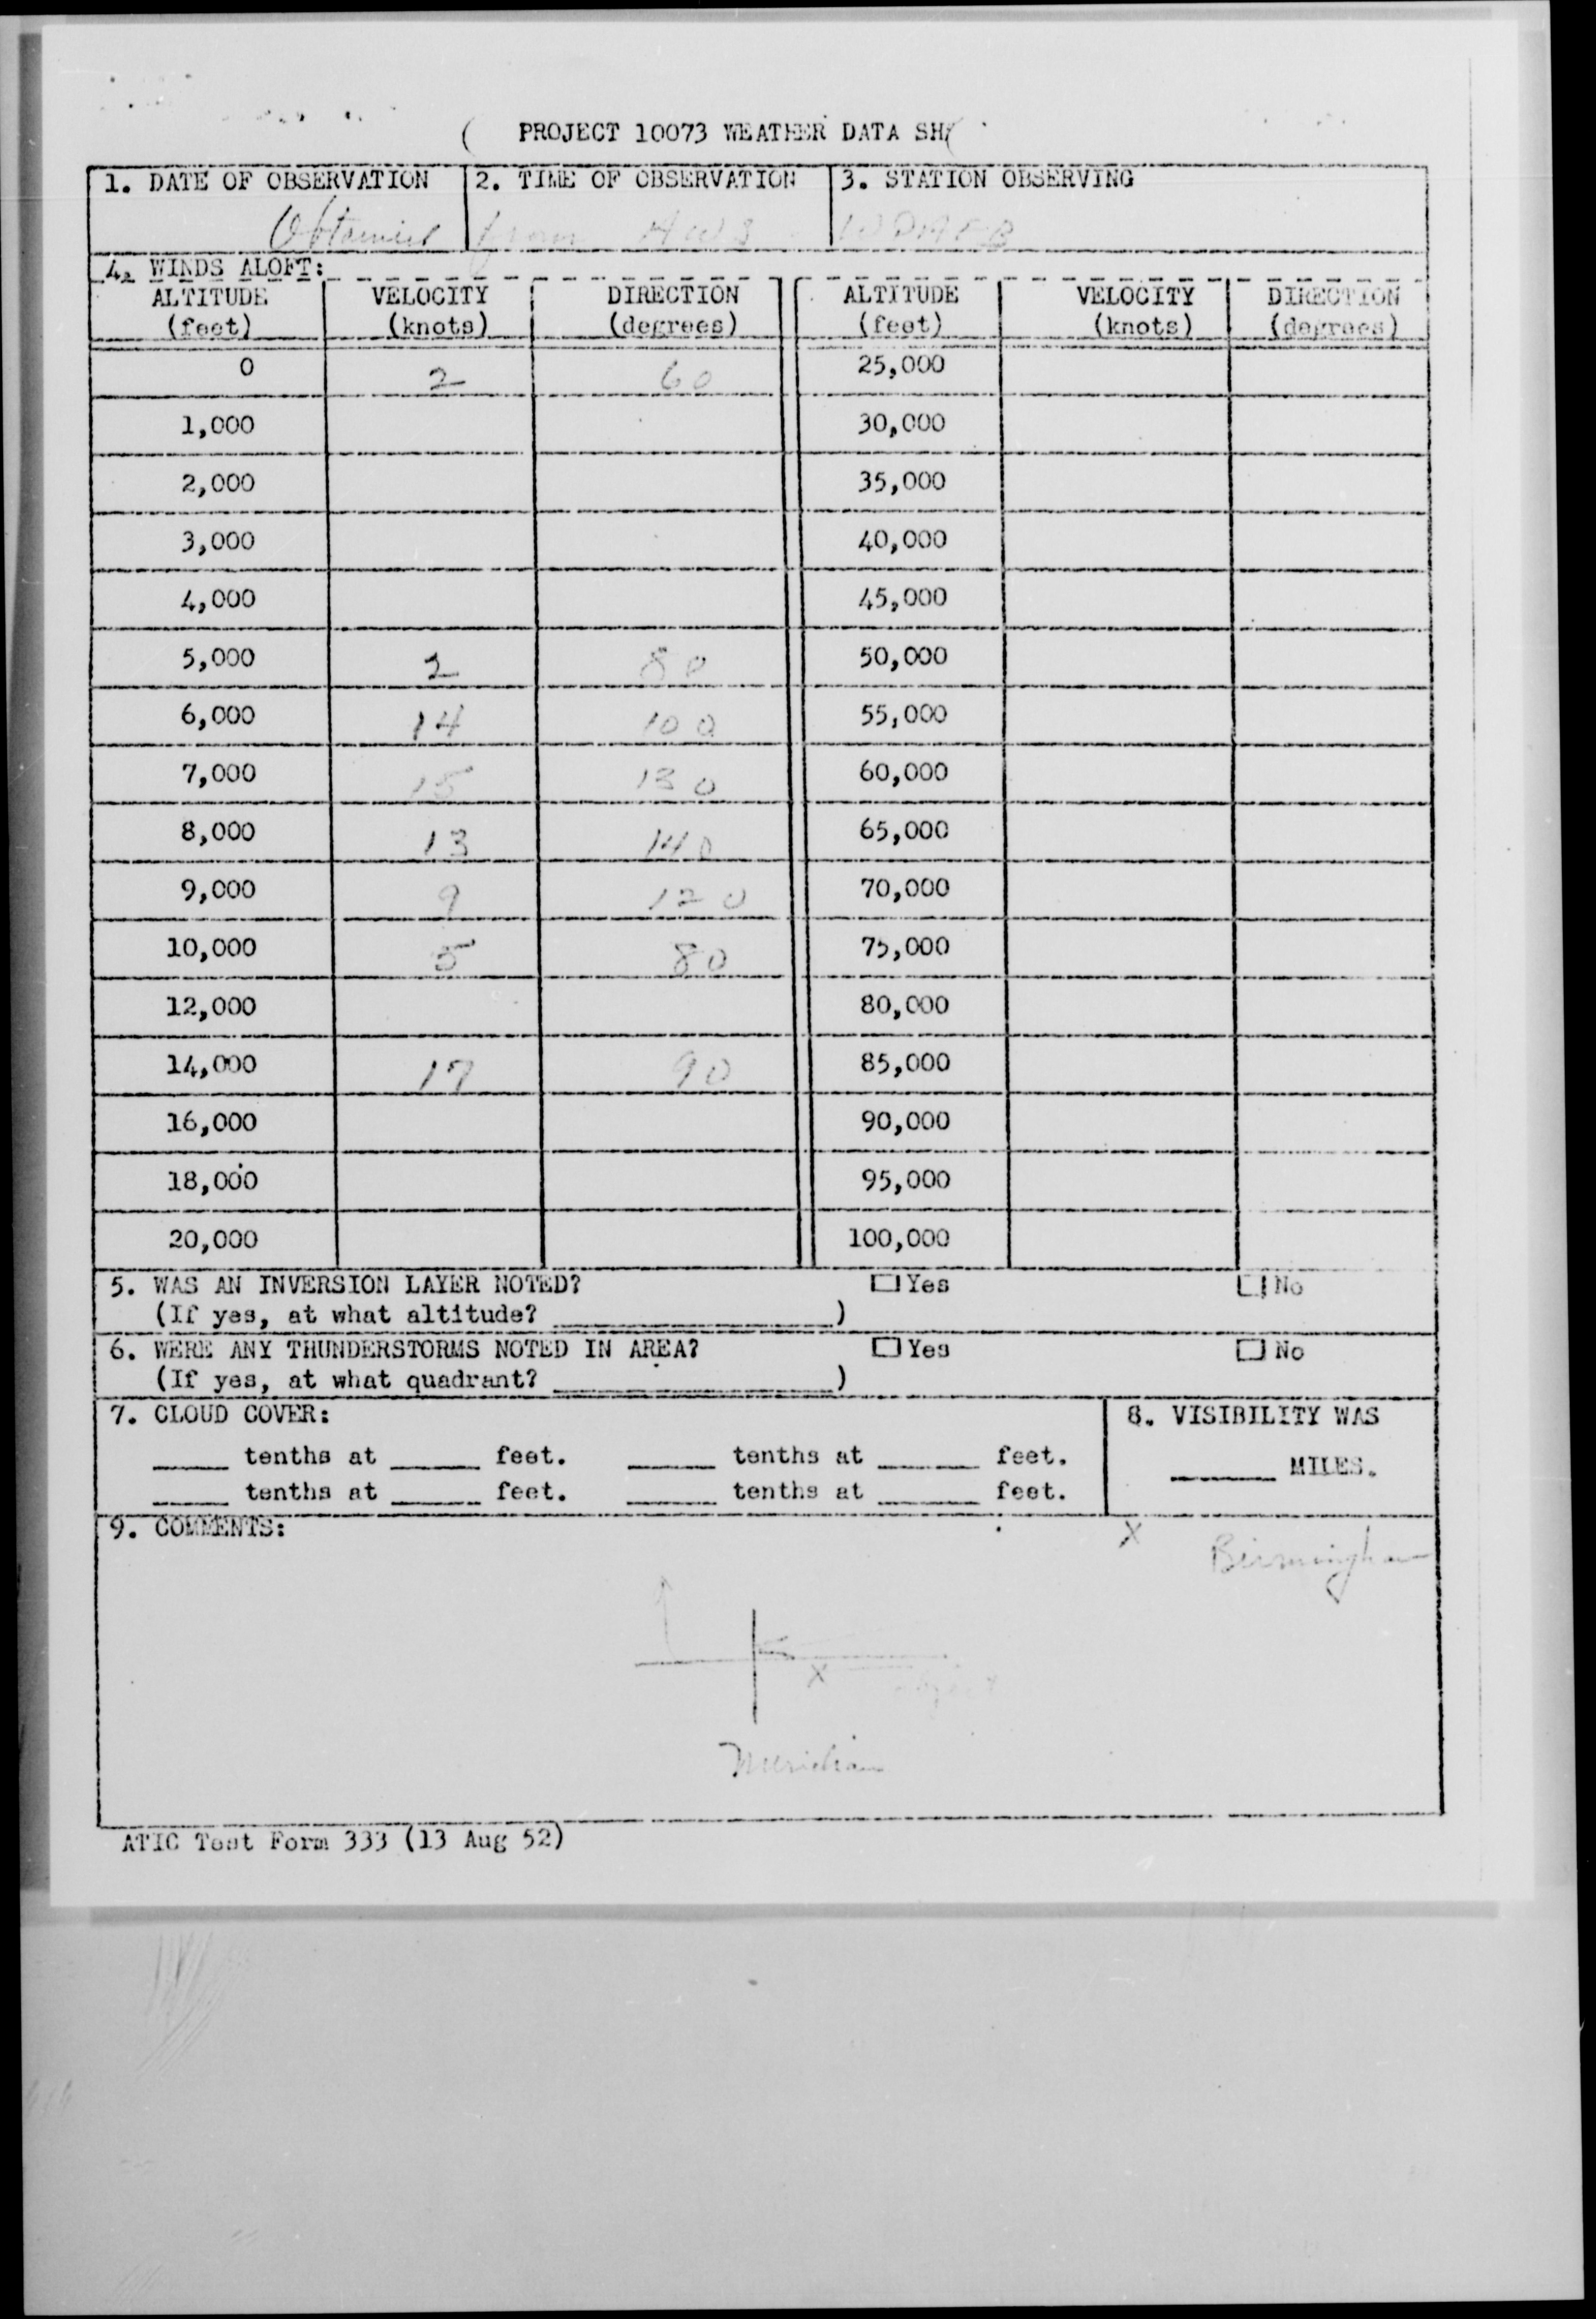 PROJECT 10073 WEATHER DATA SH
1. DATE OF OBSERVATION 2. TIME OF OBSERVATION 3. STATION OBSERVING
Obtained from AWS WPAFB
4. WINDS ALOFT:
ALTITUDE VELOCITY DIRECTION ALTITUDE VELOCITY DIRECTION
(feet) (knots) (degrees) (feet) (knots) (degrees)
0 2 60 25,000
1,000 30,000
2,000 35,000
3,000 40,000
4,000 45,000
5,000 2 80 50,000
6,000 14 100 55,000
7,000 15 130 60,000
8,000 13 140 65,000
9,000 9 120 70,000
10,000 5 80 75,000
12,000 80,000
14,000 17 90 85,000
16,000 90,000
18,000 95,000
20,000 100,000
5. WAS AN INVERSION LAYER NOTED? Yes No
(If yes, at what altitude? )
6. WERE ANY THUNDERSTORMS NOTED IN AREA? Yes No
(If yes, at what quadrant? )
7. CLOUD COVER: 8. VISIBILITY WAS
tenths at feet. tenths at feet.
MILES.
tenths at feet. tenths at feet.
9. COMMENTS:
X Birmingham
X object
Meridian
ATIC Test Form 333 (13 Aug 52)